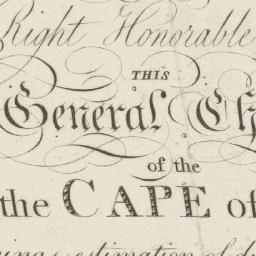 Right Honorable
THIS
General Ch
of the
the CAPE of
estimation of d